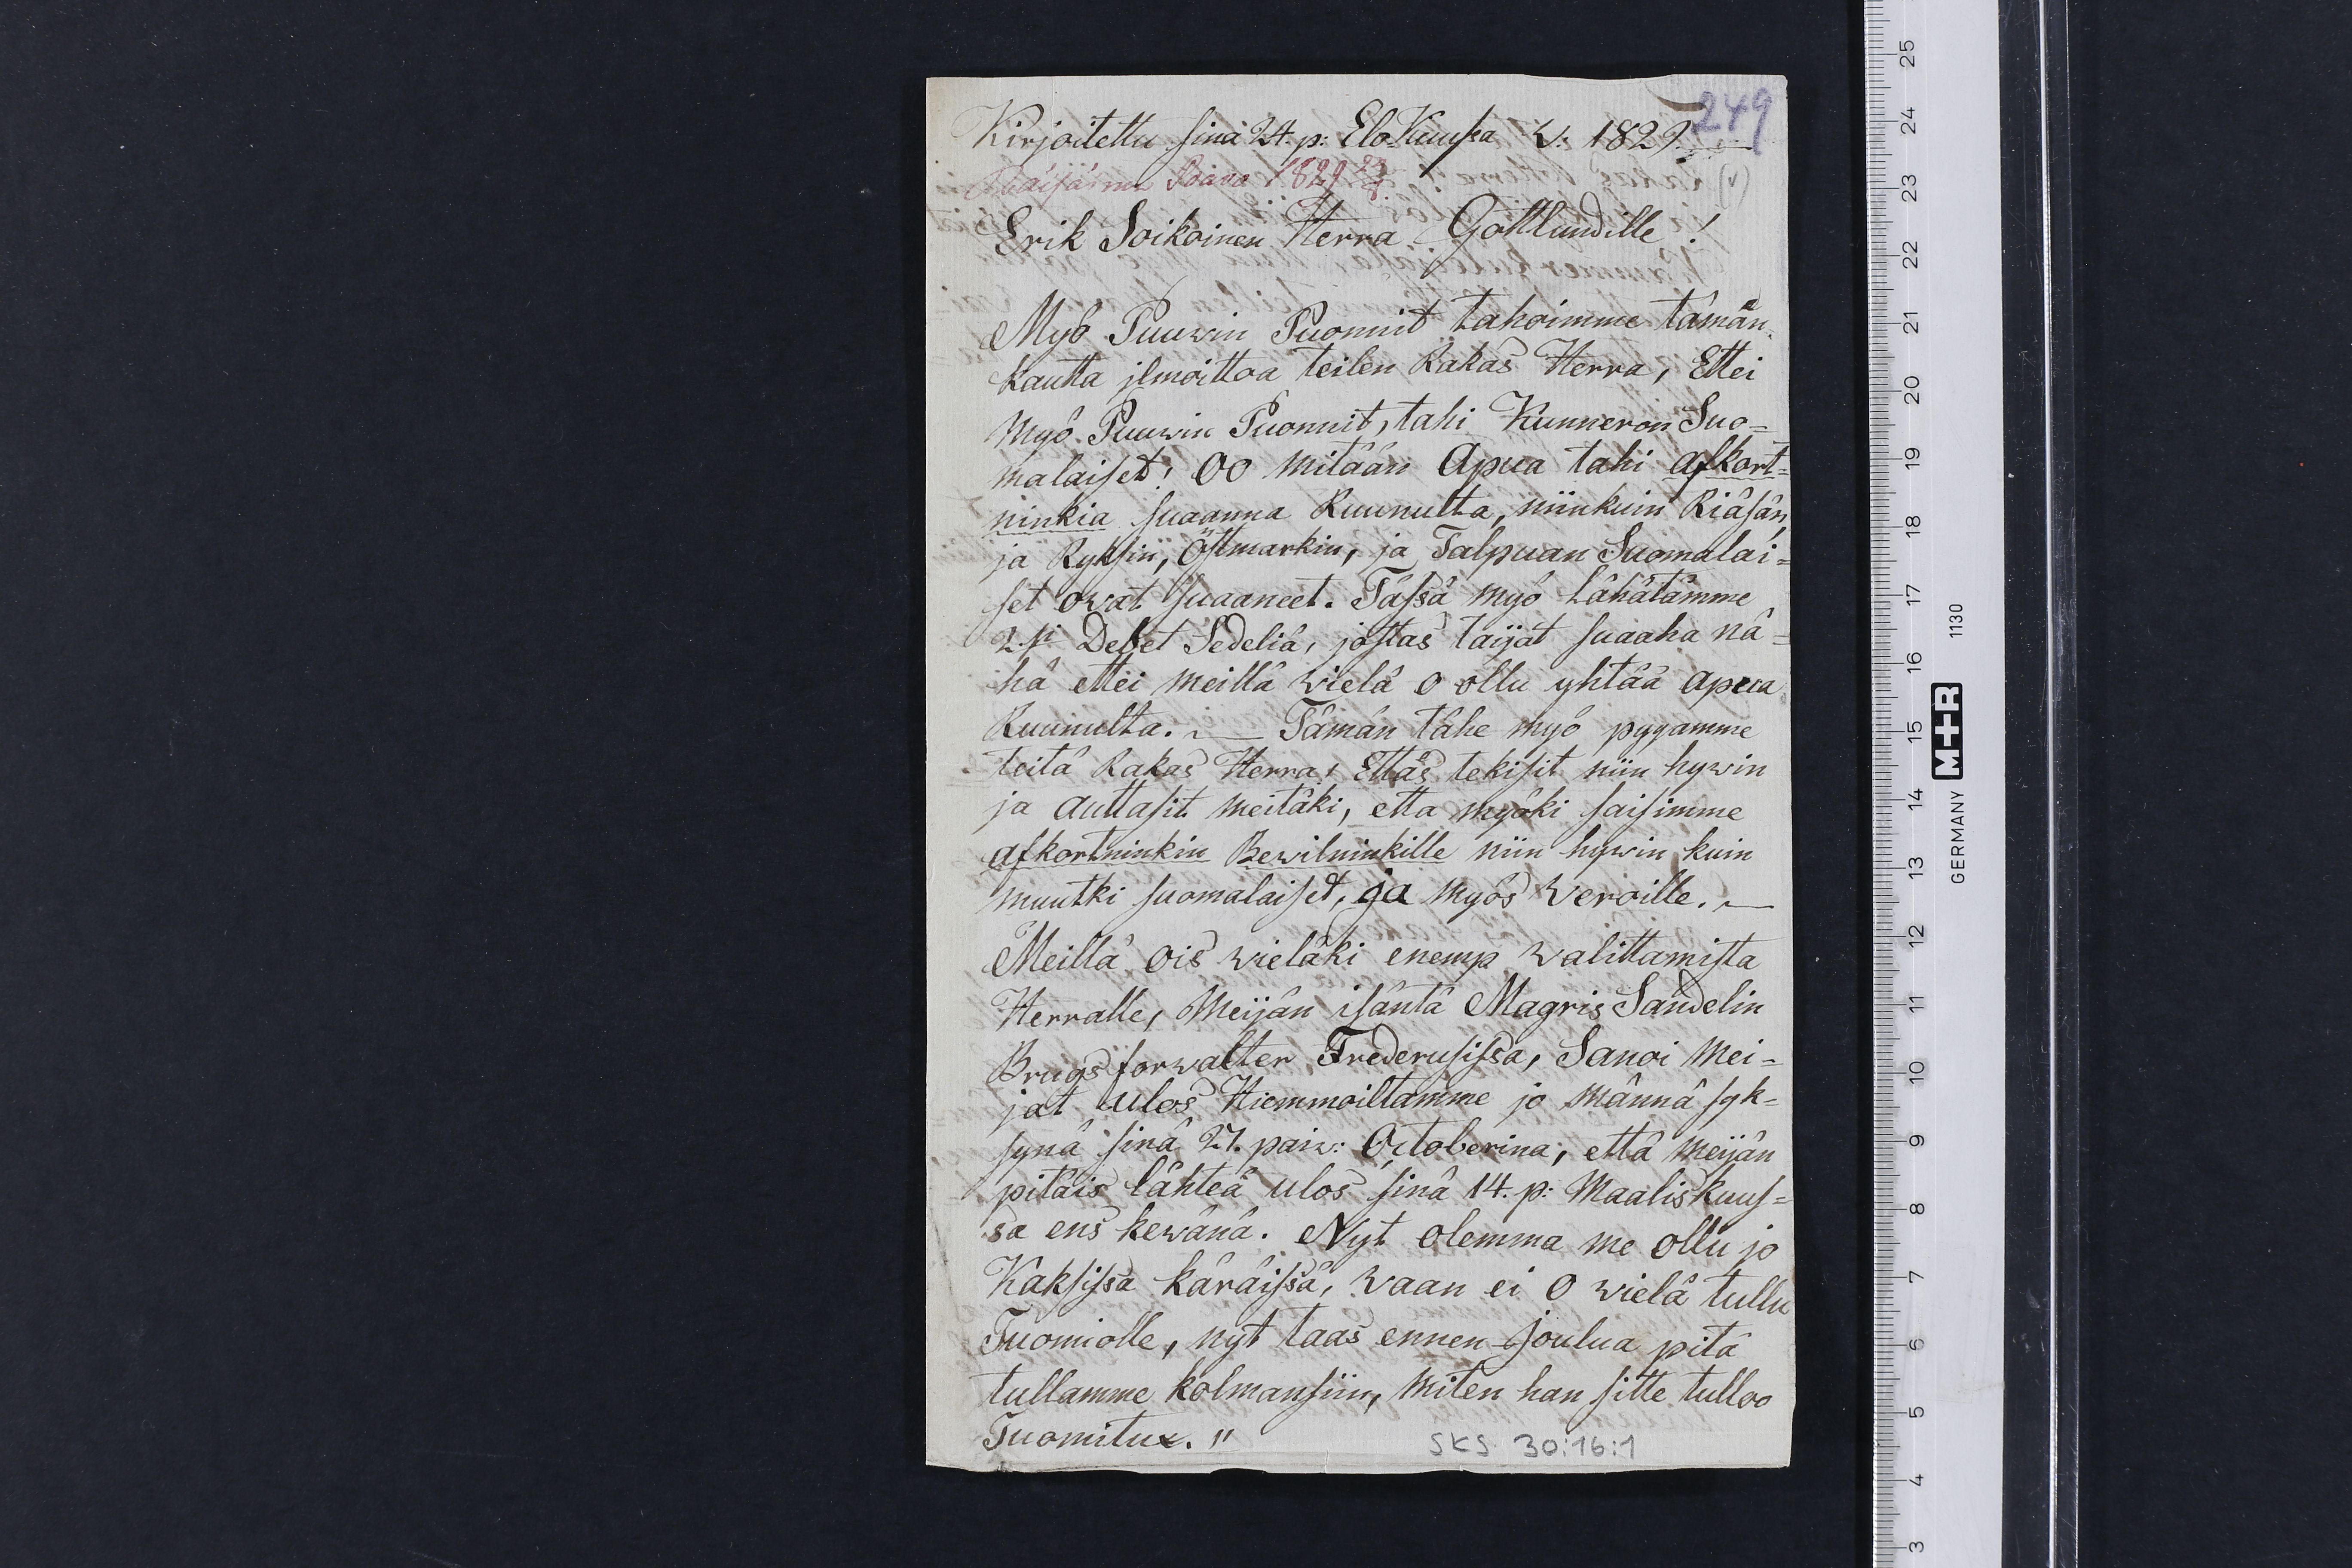 249
Kirjoitettu sinä 24. p: Elo-Kuussa v: 1829.
Räisäinen Paavo 1829 23/8 (v)
Erik Soikoinen Herra Gottlundille!
Myö Puuwin Puonnit tahoimme tämän
kautta jlmoittoa teilen Rakas Herra, Ettei
Myö Puuwin Puonnit, tahi Kunneron Suo=
malaiset! OO mitään Apua tahi afkort=
ninkia suaanna Ruunulta, niinkuin Riäsän,
ja Ryksin, Östmarkin, ja Talpuan Suomalai=
set ovat suaaneet. Tässä myö Lähätämme
2.si Debet Sedeliä, jostas taijat suaaha nä=
hä ettei meillä wielä o ollu yhtää apua
Ruunulta. — Tämän tähe myö pyyamme
teitä Rakas Herra! Ettäs tekisit niin hywin
ja auttasit meitäki, etta myöki saisimme
afkortninkin Bewilninkille niin hywin kuin
muutki suomalaiset, ja myös Veroille. —
Meillä ois wieläki enemp walittamista
Herralle, Meijän isäntä Magris Sandelin
Brugsforwalter Frederusissa, Sanoi Mei=
jät ulos Hiemmoiltamme jo männä syk=
synä sinä 27. paiw: Octoberina, että meijän
pitäis lähteä ulos sinä 14. p: Maaliskuus=
sa ens kewänä. Nyt olemma me ollu jo
Kaksissa käräissä, waan ei O wielä tullu
Tuomiolle, nyt taas ennen joulua pitä
tullamme kolmansiin, Miten han sitte tulloo
Tuomitux. "
SKS 30:16:1
3 4 5 6 7 8 9 10 11 12 13 14 15 16 17 18 19 20 21 22 23 24 25
GERMANY M+R 1130